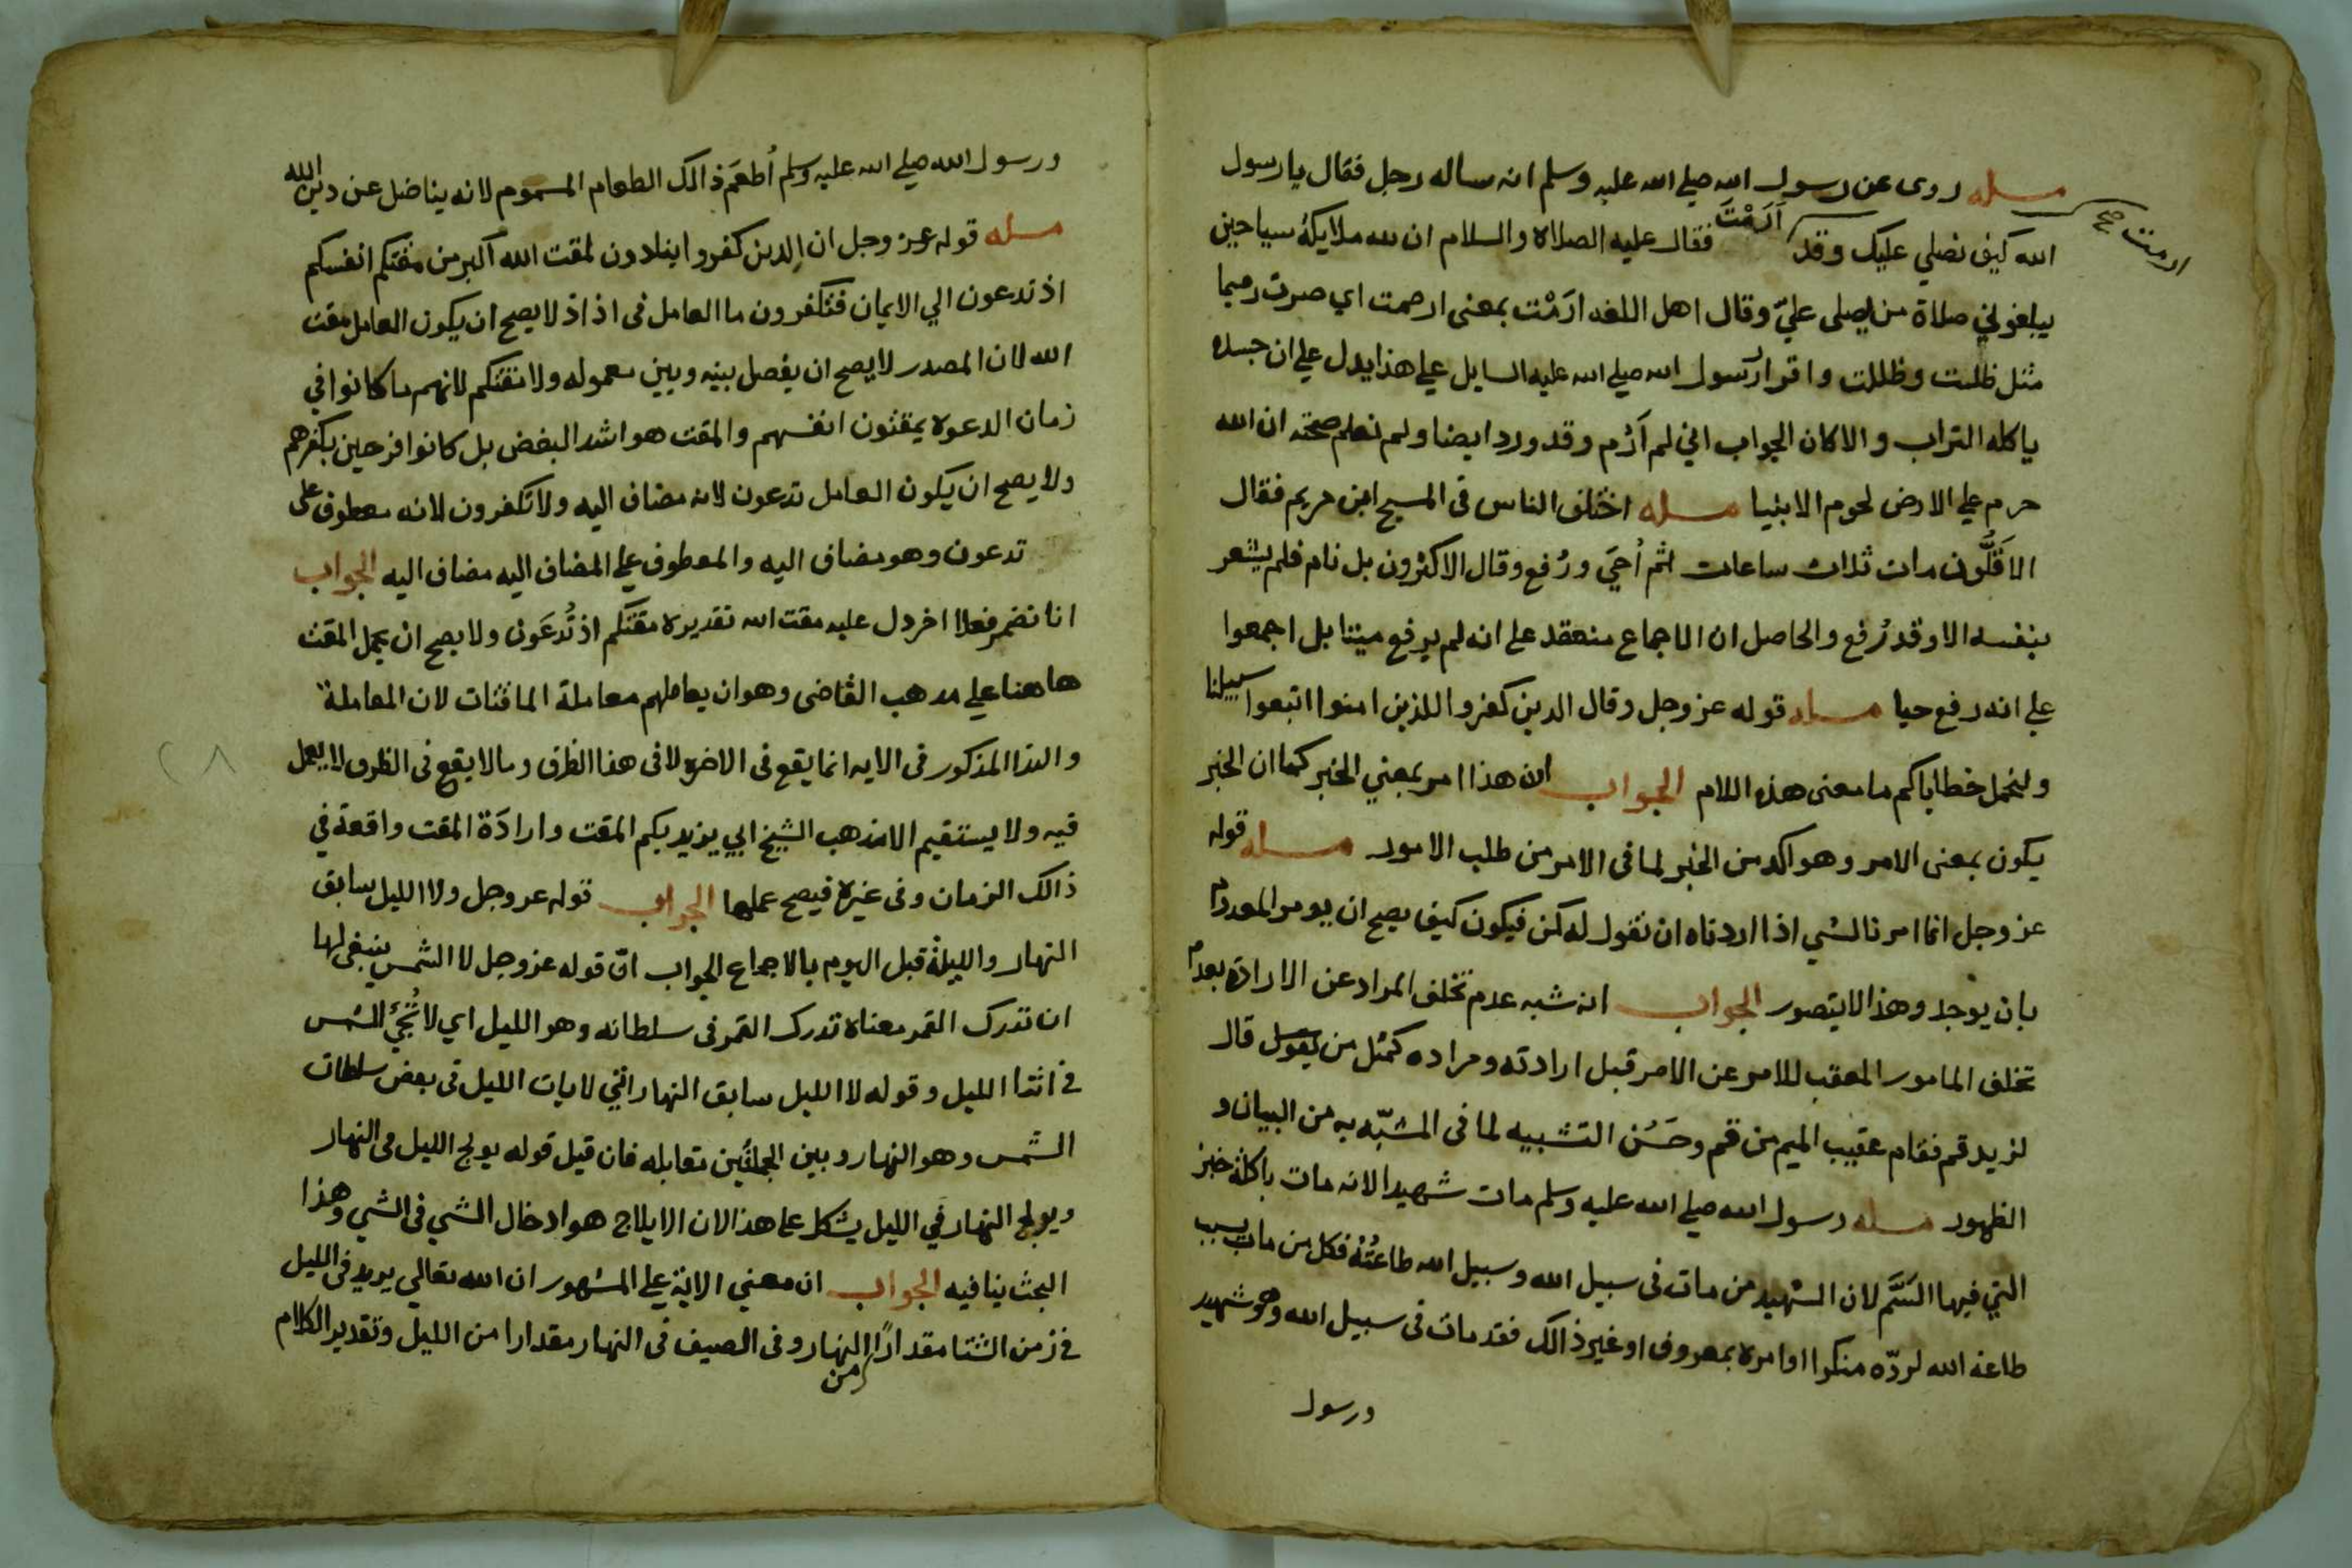 مسله روى عن رسول الله صلي الله عليه وسلم انه ساله رجل فقال يا رسول
الله كيف نصلي عليك وقد اَرَمْتَ فقال عليه الصلاة والسلام ان لله ملايكة سياحين
ارمت صح
يبلغوني صلاة من يصلى عليّ وقال اهل اللغه ارَمْت بمعنى ارممت اي صرت رميما
مثل ظلت وظللت واقرار رسول الله صلي الله عليه السايل علي هذا يدل علي ان جسده
ياكله التراب والا كان الجواب اني لم اَرَم وقد ورد ايضا ولم نعلم صحته ان الله
حرم علي الارض لحوم الانبيا مسله اختلف الناس فى المسيح ابن مريم فقال
الاَقَلُّون مات ثلاث ساعات ثم اُحيَ ورُفع وقال الاكثرون بل نام فلم يشعر
بنفسه الا وقد رُفع والحاصل ان الاجماع منعقد على انه لم يرفع ميتا بل اجمعوا
علي انه رفع حيا مسله قوله عز وجل وقال الدين كفروا للذين امنوا اتبعوا سبيلنا
ولنحمل خطاياكم ما معنى هذه اللام الجواب ان هذا امر بمعني الخبر كما ان الخبر
يكون بمعنى الامر وهو اكد من الخبر لما فى الامر من طلب الامور مسله قوله
عز وجل انما امرنا لشي اذا اردناه ان نقول له كن فيكون كيف يصح ان يومر المعدوم
بان يوجد وهذا لا يتصور الجواب انه شبه عدم تخلف المراد عن الارادة بعدم
تخلف المامور المعقب للامر عن الامر قبل ارادته ومراده كمثل من يقول قال
لزيد قم فقام عقيب الميم من قم وحَسُن التشبيه لما فى المشبّه به من البيان و
الظهور مسله رسول الله صلي الله عليه وسلم مات شهيدا لانه مات باكلة خبز
التي فيها السَّم لان الشهيد من مات فى سبيل الله وسبيل الله طاعتُهُ فكل من مات بسبب
طاعة الله لردّه منكرا او امره بمعروف او غير ذالك فقد مات فى سبيل الله وهو شهيد
ورسول
ورسول الله صلي الله عليه وسلم اُطعَم ذالك الطعام المسموم لانه يناضل عن دين الله
مسله قوله عز وجل ان الدين كفروا ينادون لمقت الله اكبر من مقتكم انفسكم
اذ تدعون الي الايمان فتكفرون ما العامل فى اذ اذ لا يصح ان يكون العامل مقت
الله لان المصدر لا يصح ان يفصل بينه وبين معموله ولا مقتكم لانهم ما كانوا في
زمان الدعوة يمقتون انفسهم والمقت هو اشد البغض بل كانوا فرحين بكفرهم
ولا يصح ان يكون العامل تدعون لانه مضاف اليه ولا تكفرون لانه معطوف على
تدعون وهو مضاف اليه والمعطوف علي المضاف اليه مضاف اليه الجواب
انا نضمر فعلا اخر دل عليه مقت الله تقديره مقتكم اذ تُدعَون ولا يصح ان يحمل المقت
هاهنا علي مدهب القاضى وهو ان يعاملهم معاملة الماقتات لان المعاملة
والندا المذكور فى الايه انما يقع فى الاخرة لا فى هذا الظرف وما لا يقع فى الظرف لا يعمل
فيه ولا يستقيم الا مذهب الشيخ ابي يزيد بكم المقت وارادَة المقت واقعة في
٢٨
ذالك الزمان وفى غيره فيصح عملها الجواب قوله عز وجل ولا الليل سابق
النهار والليلة قبل اليوم بالاجماع الجواب انّ قوله عز وجل لا الشمس ينبغى لها
ان تدرك القمر معناه تدرك القمر فى سلطانه وهو الليل اي لا تُجيُ الشمس
في اثنا الليل وقوله لا الليل سابق النهار انيّ لا يات الليل فى بعض سلطان
الشمس وهو النهار وبين الجملتَين تقابله فان قيل قوله يولج الليل فى النهار
ويولج النهار في الليل يشكل على هذا لان الايلاج هو ادخال الشي فى الشي وهذا
البحث ينافيه الجواب ان معني الاية علي المشهور ان الله تعالي يريد فى الليل
في زمن الشتا مقدارًا من النهار وفى الصيف فى النهار مقدارا من الليل وتقدير الكلام